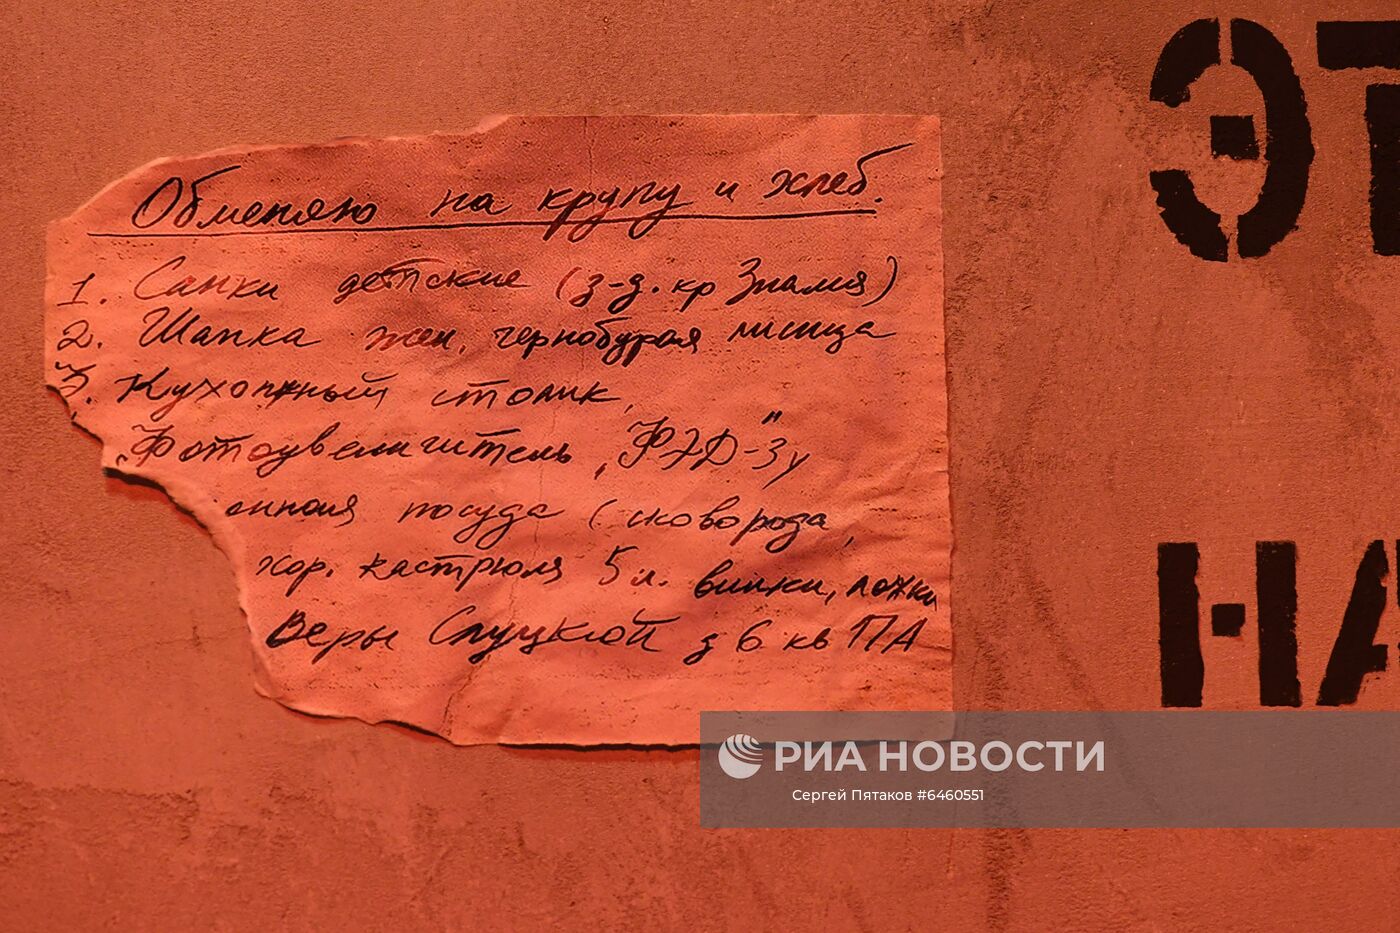 Обменяю на крупу и хлеб.
1. Санки детские (з-д. кр Знамя)
2. Шапка жен. чернобурая лисица
3. Кухонный столик,
Фотоувеличитель, "ФЭД"-3у
енная посуда (сковорода,
хор. кастрюля 5 л. вилки, ложки
Веры Слуцкой д 6 кв 17А
ЭТ
НА
РИА НОВОСТИ
Сергей Пятаков #6460551